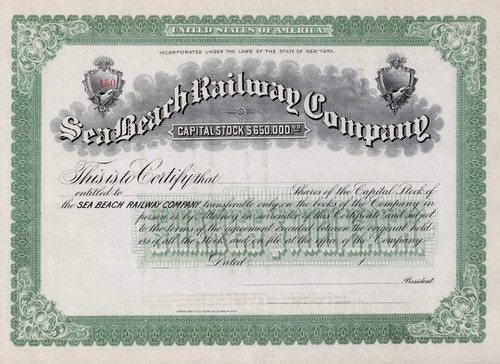 UNITED STATES OF AMERICA.
INCORPORATED UNDER THE LAWS OF THE STATE OF NEW YORK.
150
Sea Beach Railway Company
CAPITAL STOCK $650.000 00
This is to Certify that
entitled to Shares of the Capital Stock of
the SEA BEACH RAILWAY COMPANY transferable only on the books of the Company in
person or by Attorney on surrender of this Certificate and subject
to the terms of the agreement executed between the original hold-
ers of all the Stock and on file at the office of the Company.
Dated 1
President.